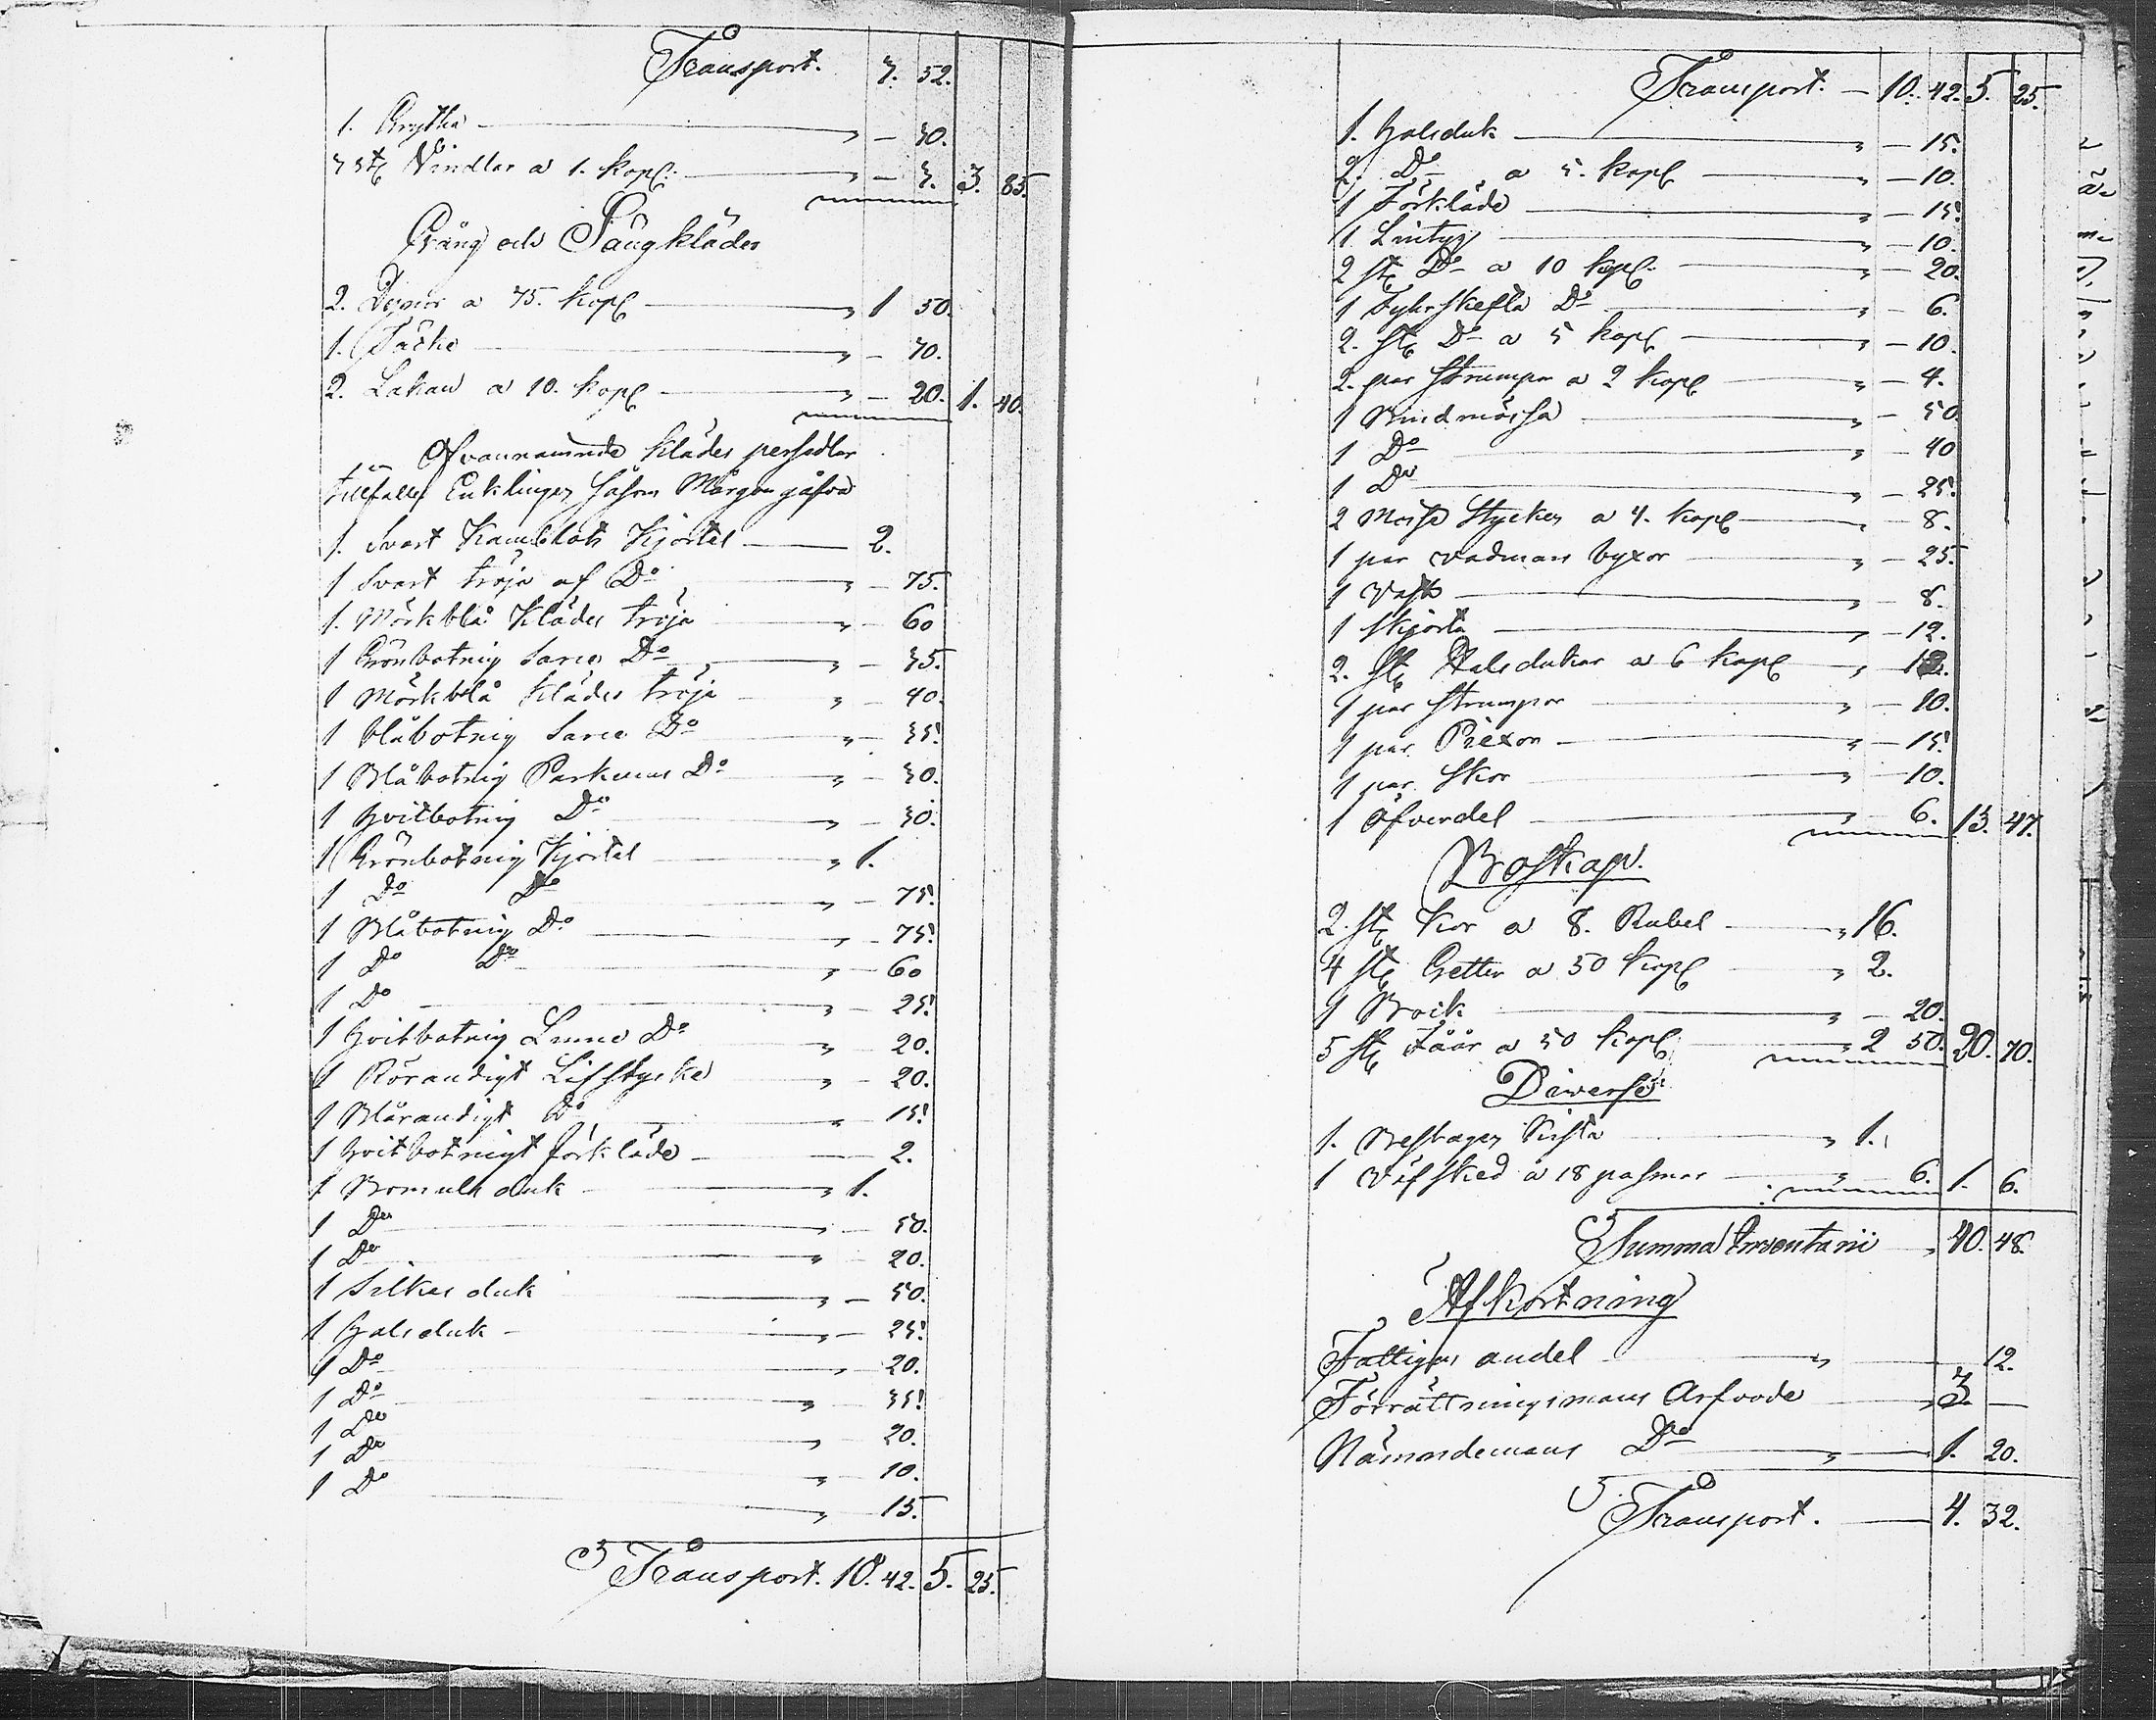 Transport. 7. 52.
1. Grytha — " — 30.
3 st. Vindlar a 1. kop. — " — 3. 3. 85.
Gång och Sängkläder
2. Dynor a 75. kop — " 1 50.
1. Täcke — " — 70.
2. Lakan a 10. kop — " — 20. 1. 40.
Ofvannämnde kläder persedlar
tillfaller Enklingen såsom Morgongåfva
1. Svart Kamblots Kjortel — 2.
1 Svart tröja af Do — " — 75.
1. Mörkblå Klädes tröja " — 60
1 Grönbotnig Sarce Do — " — 35.
1 Mörkblå klädes tröja — " — 40.
1 blåbotnig Sarce Do " — 35.
1 Blåbotnig Parkums Do " — 30.
1 Hvitbotnig Do — " — 30.
1 Grönbotnig Kjortel — " 1.
1 Do Do — " — 75.
1 Blåbotnig Do — " — 75.
1 Do Do — " — 60
1 Do — " — 25.
1 Hvitbotnig Linne Do " — 20.
1 Rörandigt Lifstycke " — 20.
1 Blårandigt Do — " 15.
1 Hvitbotnigt förkläde — 2.
1 Bomuls duk — " 1.
1 Do — " — 50.
1 Do — " — 20.
1 Silkes duk " — 50.
1 Halsduk — " — 25.
1 Do — " — 20.
1 Do — " — 35.
1 Do — " — 20.
1 Do " — 10.
1 Do — " — 15.
Transport. 10. 42. 5. 25.
Transport. — 10. 42. 5. 25.
1. Halsduk — " — 15.
2. Do a 5. kop — " — 10.
1 Förkläde — " — 15.
1. Lintyg — " — 10.
2 st. Do a 10 kop. — " — 20.
1 Fyhrskefta Do — " — 6.
2. st. Do a 5 kop — " — 10.
2. par Strumpor a 2 kop — " — 4.
1 Bindmössa — " — 50
1 Do — " — 40
1 Do — " — 25.
2 Mössa Stycken a 4. kop — " — 8.
1 par vadmans byxor — " — 25.
1 Väst — " — 8.
1 Skjorta — " — 12.
2. st. Halsdukar a 6 kop — " 12.
1 par Strumpor — " — 10.
1 par Piexor — " — 15.
1 par Skor — " — 10.
1 Öfverdel — " 6. 13. 47.
Boskap.
2. st. Kor a 8. Rubel — " 16.
4 st. Getter a 50 kop — " 2.
1 Bock — " — 20.
5 st. Fåår a 50 kop — " 2 50. 20. 70.
Diverse
1. Beslagen Kista — " 1.
1 Väfsked a 18 pasmar — " 6. 1. 6.
Summa Inventarii " 40. 48.
Afkortning
Fattigas andel — " — 12.
Förrättningsmans Arfvode — " 3. —
Nämndemans Do — " — 1. 20.
Transport. — 4. 32.